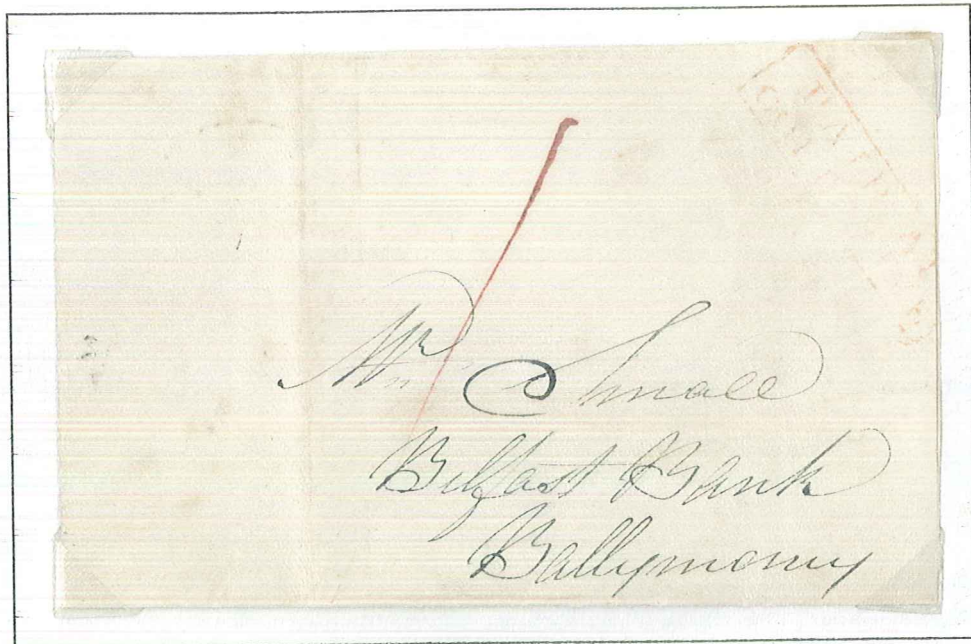 PAID AT
1
Mr Small
Belfast Bank
Ballymoney